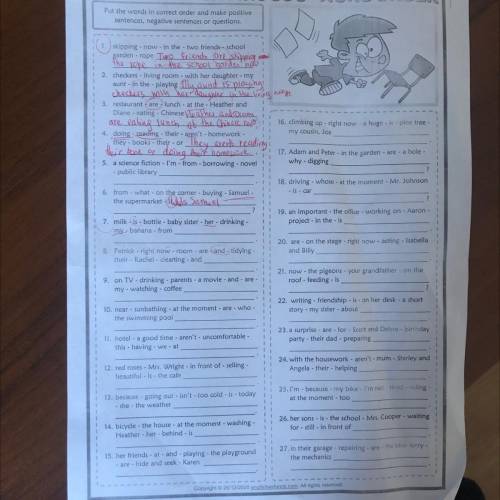 Put the words in correct order and make positive
sentences, negative sentences or questions.
1. skipping - now - in the - two friends - school
garden - rope Two friends are skipping
the rope in the school garden now
2. checkers - living room - with her daughter - my
aunt - in the - playing My aunt is playing
checkers with her daughter in the living room
3. restaurant - are - lunch - at the - Heather and
Diane - eating - Chinese Heather and Diane
are eating lunch at the Chinese
4. doing - reading - their - aren't - homework -
they - books - their - or They aren't reading
their or doing their homework.
5. a science fiction - I'm - from - borrowing - novel
- public library
6. from - what - on the corner - buying - Samuel -
the supermarket - is Samuel
?
7. milk - is - bottle - baby sister - her - drinking -
my - banana - from
8. Patrick - right now - room - are - and - tidying -
their - Rachel - clearing - and
9. on TV - drinking - parents - a movie - and - are -
my - watching - coffee
10. near - sunbathing - at the moment - are - who -
the swimming pool
?
11. hotel - a good time - aren't - uncomfortable -
this - having - we - at
12. red roses - Mrs. Wright - in front of - selling -
beautiful - is - the cafe
13. because - going out - isn't - too cold - is - today
- the - the weather
14. bicycle - the house - at the moment - washing -
Heather - her - behind - is
15. her friends - at - and - playing - the playground
- are - hide and seek - Karen
16. climbing up - right now - a huge - is - pine tree -
my cousin, Joe
17. Adam and Peter - in the garden - are - a hole -
why - digging
?
18. driving - whose - at the moment - Mr. Johnson
- is - car
?
19. an important - the office - working on - Aaron -
project - in the - is
20. are - on the stage - right now - acting - Isabella
and Billy
21. now - the pigeons - your grandfather - on the
roof - feeding - is
?
22. writing - friendship - is - on her desk - a short
story - my sister - about
23. a surprise - are - for - Scott and Debra - birthday
party - their dad - preparing
24. with the housework - aren't - mum - Shirley and
Angela - their - helping
25. I'm - because - my bike - I'm not - tired - riding -
at the moment - too
26. her sons - is - the school - Mrs. Cooper - waiting
for - still - in front of
27. in their garage - repairing - are - - -
the mechanics